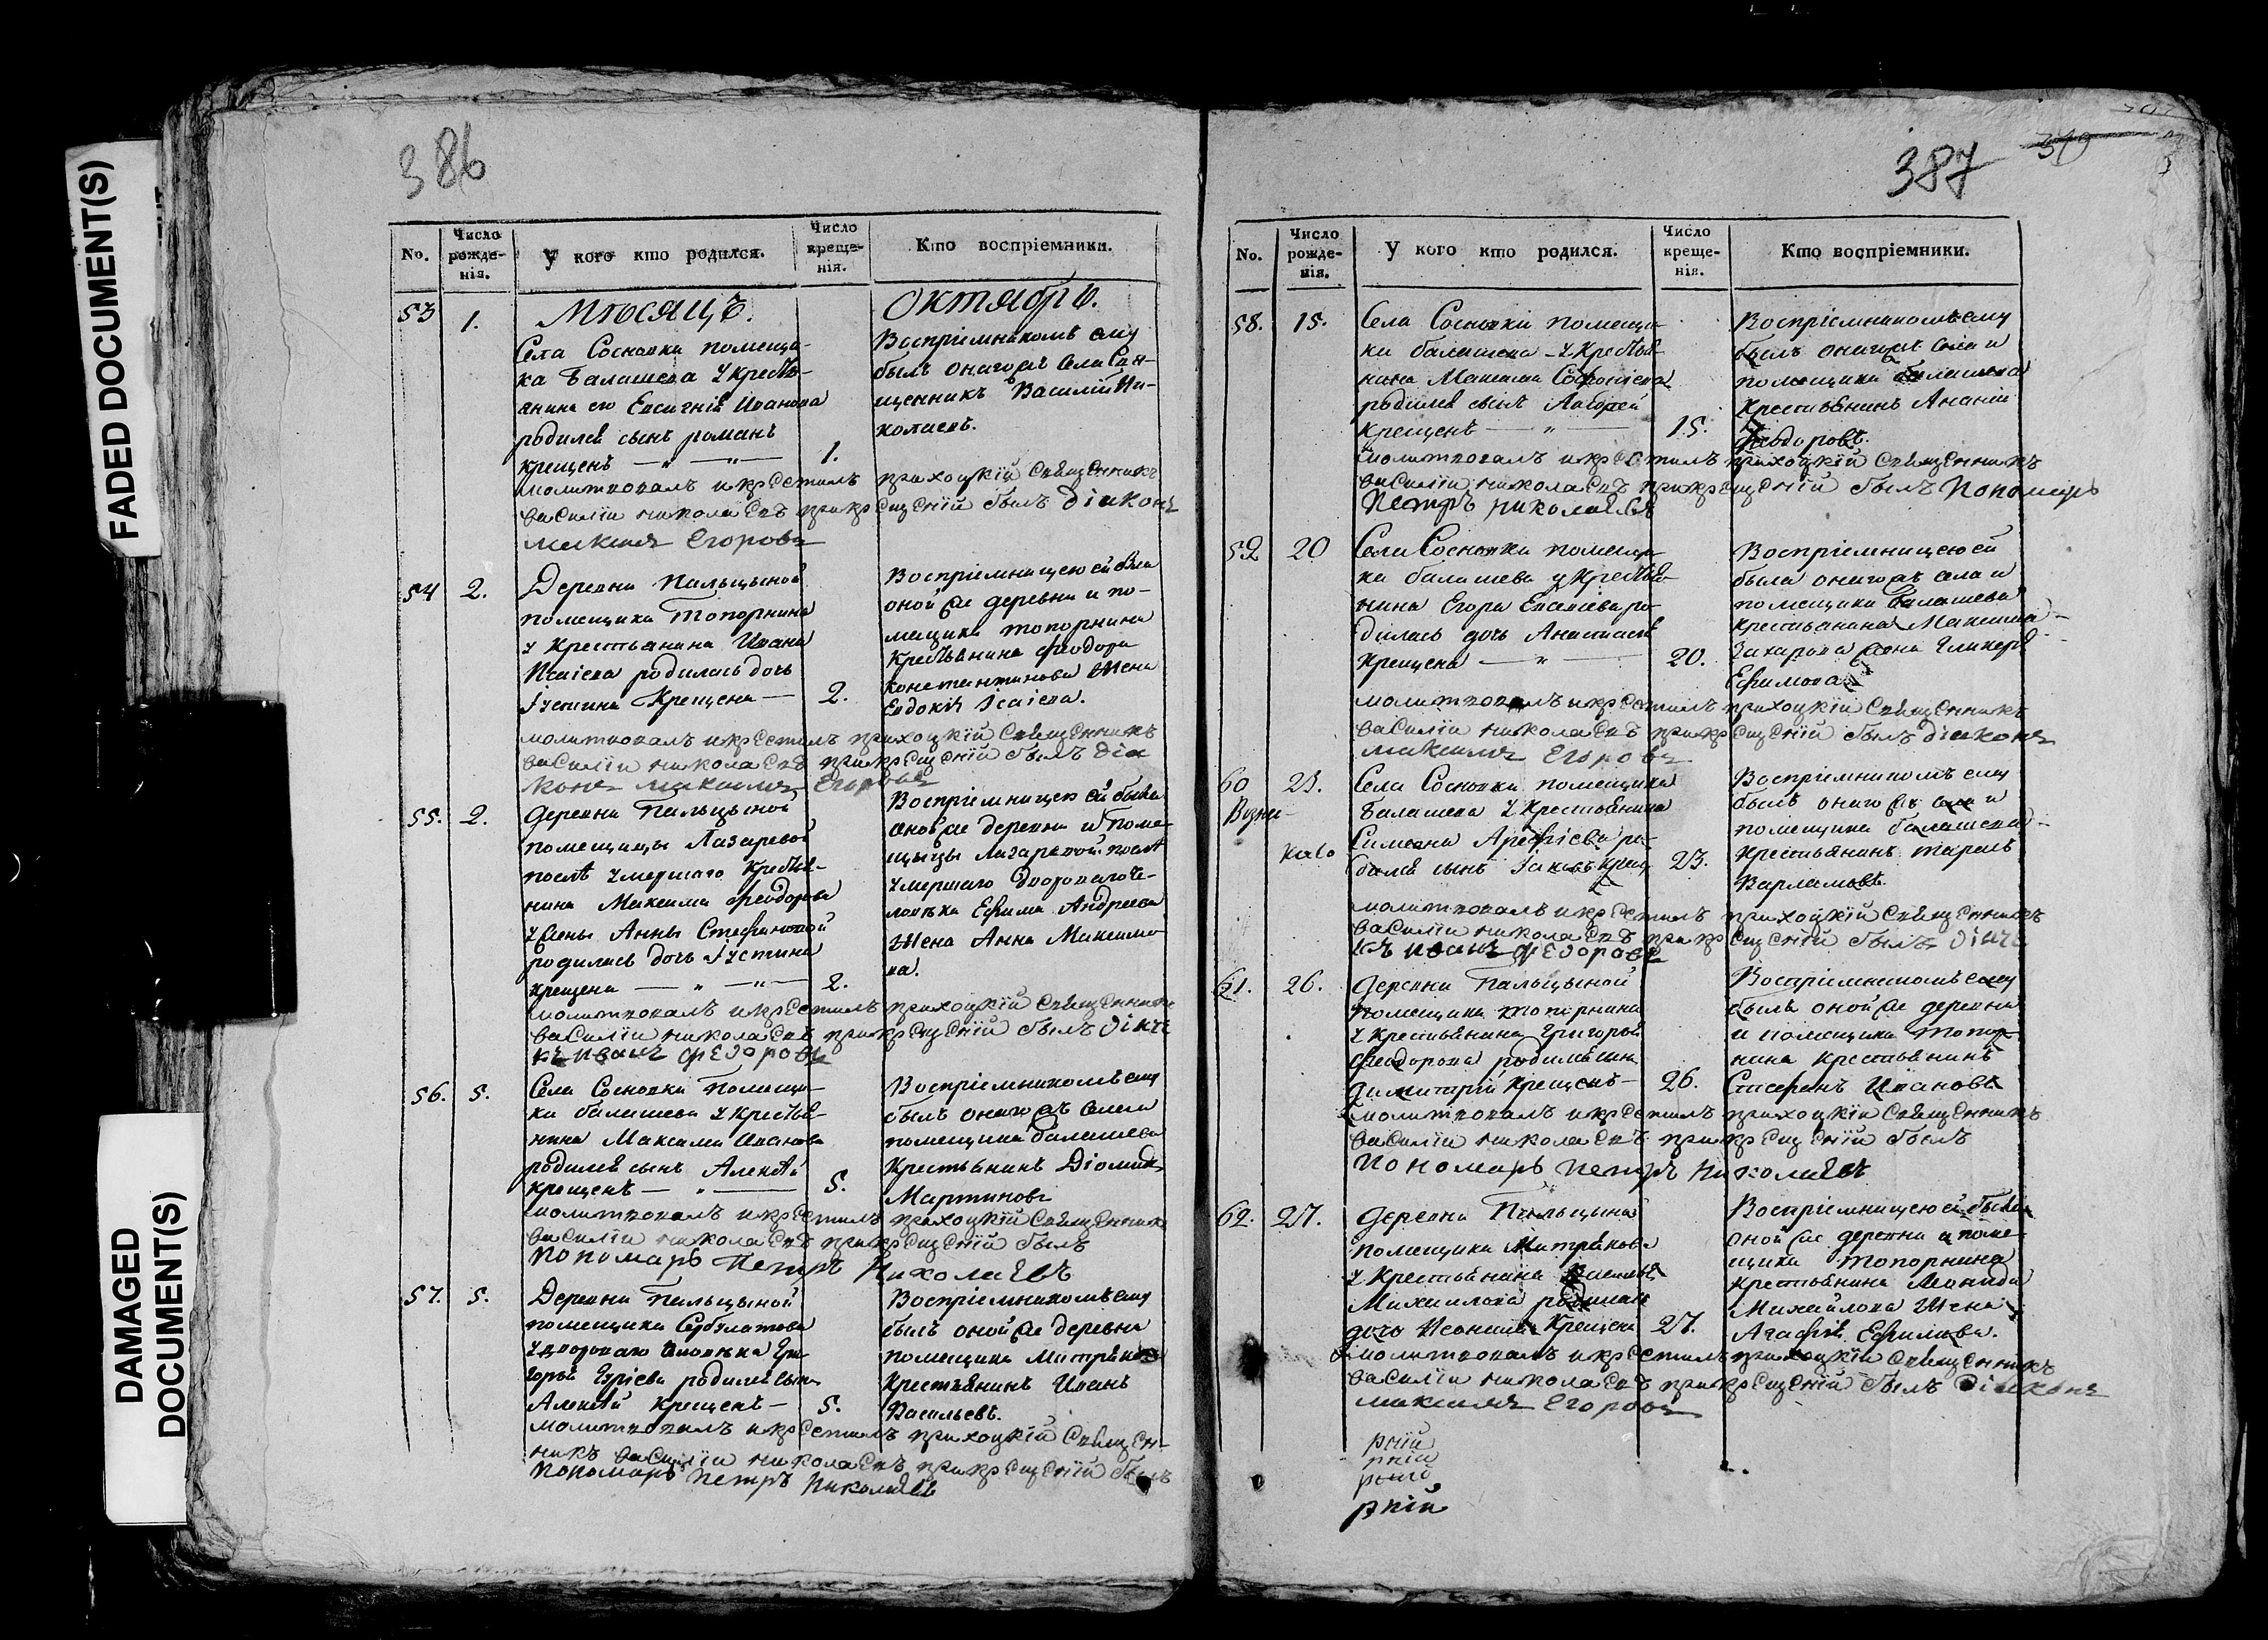 FADED DOCUMENT(S)
DAMAGED
DOCUMENT(S)
386
No.
Число рожде- нія.
У кого кто родился.
Число креще- нія.
Кто воспріемники.
53
1.
Мѣсяцъ.
Октябрь.
Села Сосновки помещи-
ка Балашева у кресть-
янина его Евсигнія Иванова
родился сынъ романъ
крещенъ — „ — „ —
1.
Воспріемникомъ ему
былъ онагожъ села Свя-
щенникъ Василій Ни-
колаевъ.
молитвовалъ и крестилъ приходцкій Священникъ
василіи николаевъ при крещеніи былъ діаконъ
максимъ Егоровъ
54
2.
Деревни Пальцыной
помещика Топорнина
у Крестьянина Ивана
Исаіева родилась дочь
Іустина Крещена —
2.
Воспріемницею ей была
оной же деревни и по-
мещика топорнина
Крестьянина феодора
константинова жена
Евдокія Ісаіева.
молитвовалъ и крестилъ приходцкій Священникъ
василіи николаевъ при крещеніи былъ діа
конъ максимъ Егоровъ
55.
2.
Деревни Пальцыной
помещицы Лазаревой
послѣ умершаго Крестья-
нина Максима Феодорова
у жены Анны Стефановой
родилась дочь Іустина
крещена — „ — „ —
2.
Воспріемницею ей была
оной же деревни и поме-
щыцы лазаревой послѣ
умершаго двороваго че-
ловѣка Ефима Андреева
жена Анна Максимо-
ва.
молитвовалъ и крестилъ приходцкій Священникъ
василіи николаевъ при крещеніи былъ діаче
къ иванъ федоровъ
56.
5.
Села Сосновки помещи-
ка балашева у крестья-
нина Максима Иванова
родился сынъ Алексѣй
крещенъ — „ —
5.
Воспріемникомъ ему
былъ онагожъ села и
помещика балашева
Крестьянинъ Діомидъ
Мартиновъ
молитвовалъ и крестилъ приходцкій Священникъ
василіи николаевъ при крещеніи былъ
пономарь Петръ Николаевъ
57.
5.
Деревни Пальцыной
помещика Сербулатова
у двороваго человѣка Гри-
горья Гурьева родился сынъ
Алексѣй крещенъ —
5.
Воспріемникомъ ему
былъ оной же деревни
помещика Митрѣкова
Крестьянинъ Иванъ
Васильевъ.
молитвовалъ и крестилъ приходцкій Священ-
никъ василіи николаевъ при крещеніи былъ
пономарь петръ николаевъ
387
No.
Число рожде- нія.
У кого кто родился.
Число креще- нія.
Кто воспріемники.
58.
15.
Села Сосновки помещи-
ка балашева у Крестья-
нина Максима Софоніева
родился сынъ Андрей
крещенъ — „ —
15.
Воспріемникомъ ему
былъ онагожъ села и
помещика балашева
Крестьянинъ Ананій
Феодоровъ.
молитвовалъ и крестилъ приходцкій Священникъ
василіи николаевъ при крещеніи былъ пономарь
Петръ николаевъ
59
20
Села Сосновки помещи-
ка балашева у Крестья-
нина Егора Евсевіева ро-
дилась дочь Анастасія
Крещена — „ —
20.
Воспріемницею ей
была онагожъ села и
помещика балашева
крестьянина Максима
Захарова жена Гликерія
Ефимова
молитвовалъ и крестилъ приходцкій Священникъ
василіи николаевъ при крещеніи былъ діаконъ
максимъ Егоровъ
60
23.
Села Сосновки помещика
Балашева у Крестьянина
Симеона Арефіева ро-
дился сынъ Іаковъ крещ.
23.
Воспріемникомъ ему
былъ онагожъ села и
помещика балашева
Крестьянинъ тарасъ
Варламовъ.
молитвовалъ и крестилъ приходцкій Священникъ
василіи николаевъ при крещеніи былъ діаче
къ иванъ федоровъ
61.
26.
Деревни Пальцыной
помещика топорнина
у крестьянина Григорья
Феодорова родился сынъ
Димитрій крещенъ —
26.
Воспріемникомъ ему
былъ оной же деревни
и помещика Топор-
нина крестьянинъ
Стефанъ Ивановъ
молитвовалъ и крестилъ приходцкіи Священникъ
василіи николаевъ при крещеніи былъ
пономарь петръ николаевъ
62.
27.
Деревни Пальцыной
помещика Митрѣкова
у Крестьянина
Михаилова родилась
дочь Крещена
27.
Воспріемницею ей была
оной же деревни и поме-
щика топорнина
крестьянина Леонида
Михайлова жена
Агафія Ефимова.
молитвовалъ и крестилъ приходцкій Священникъ
василіи николаевъ при крещеніи былъ діаконъ
максимъ Егоровъ